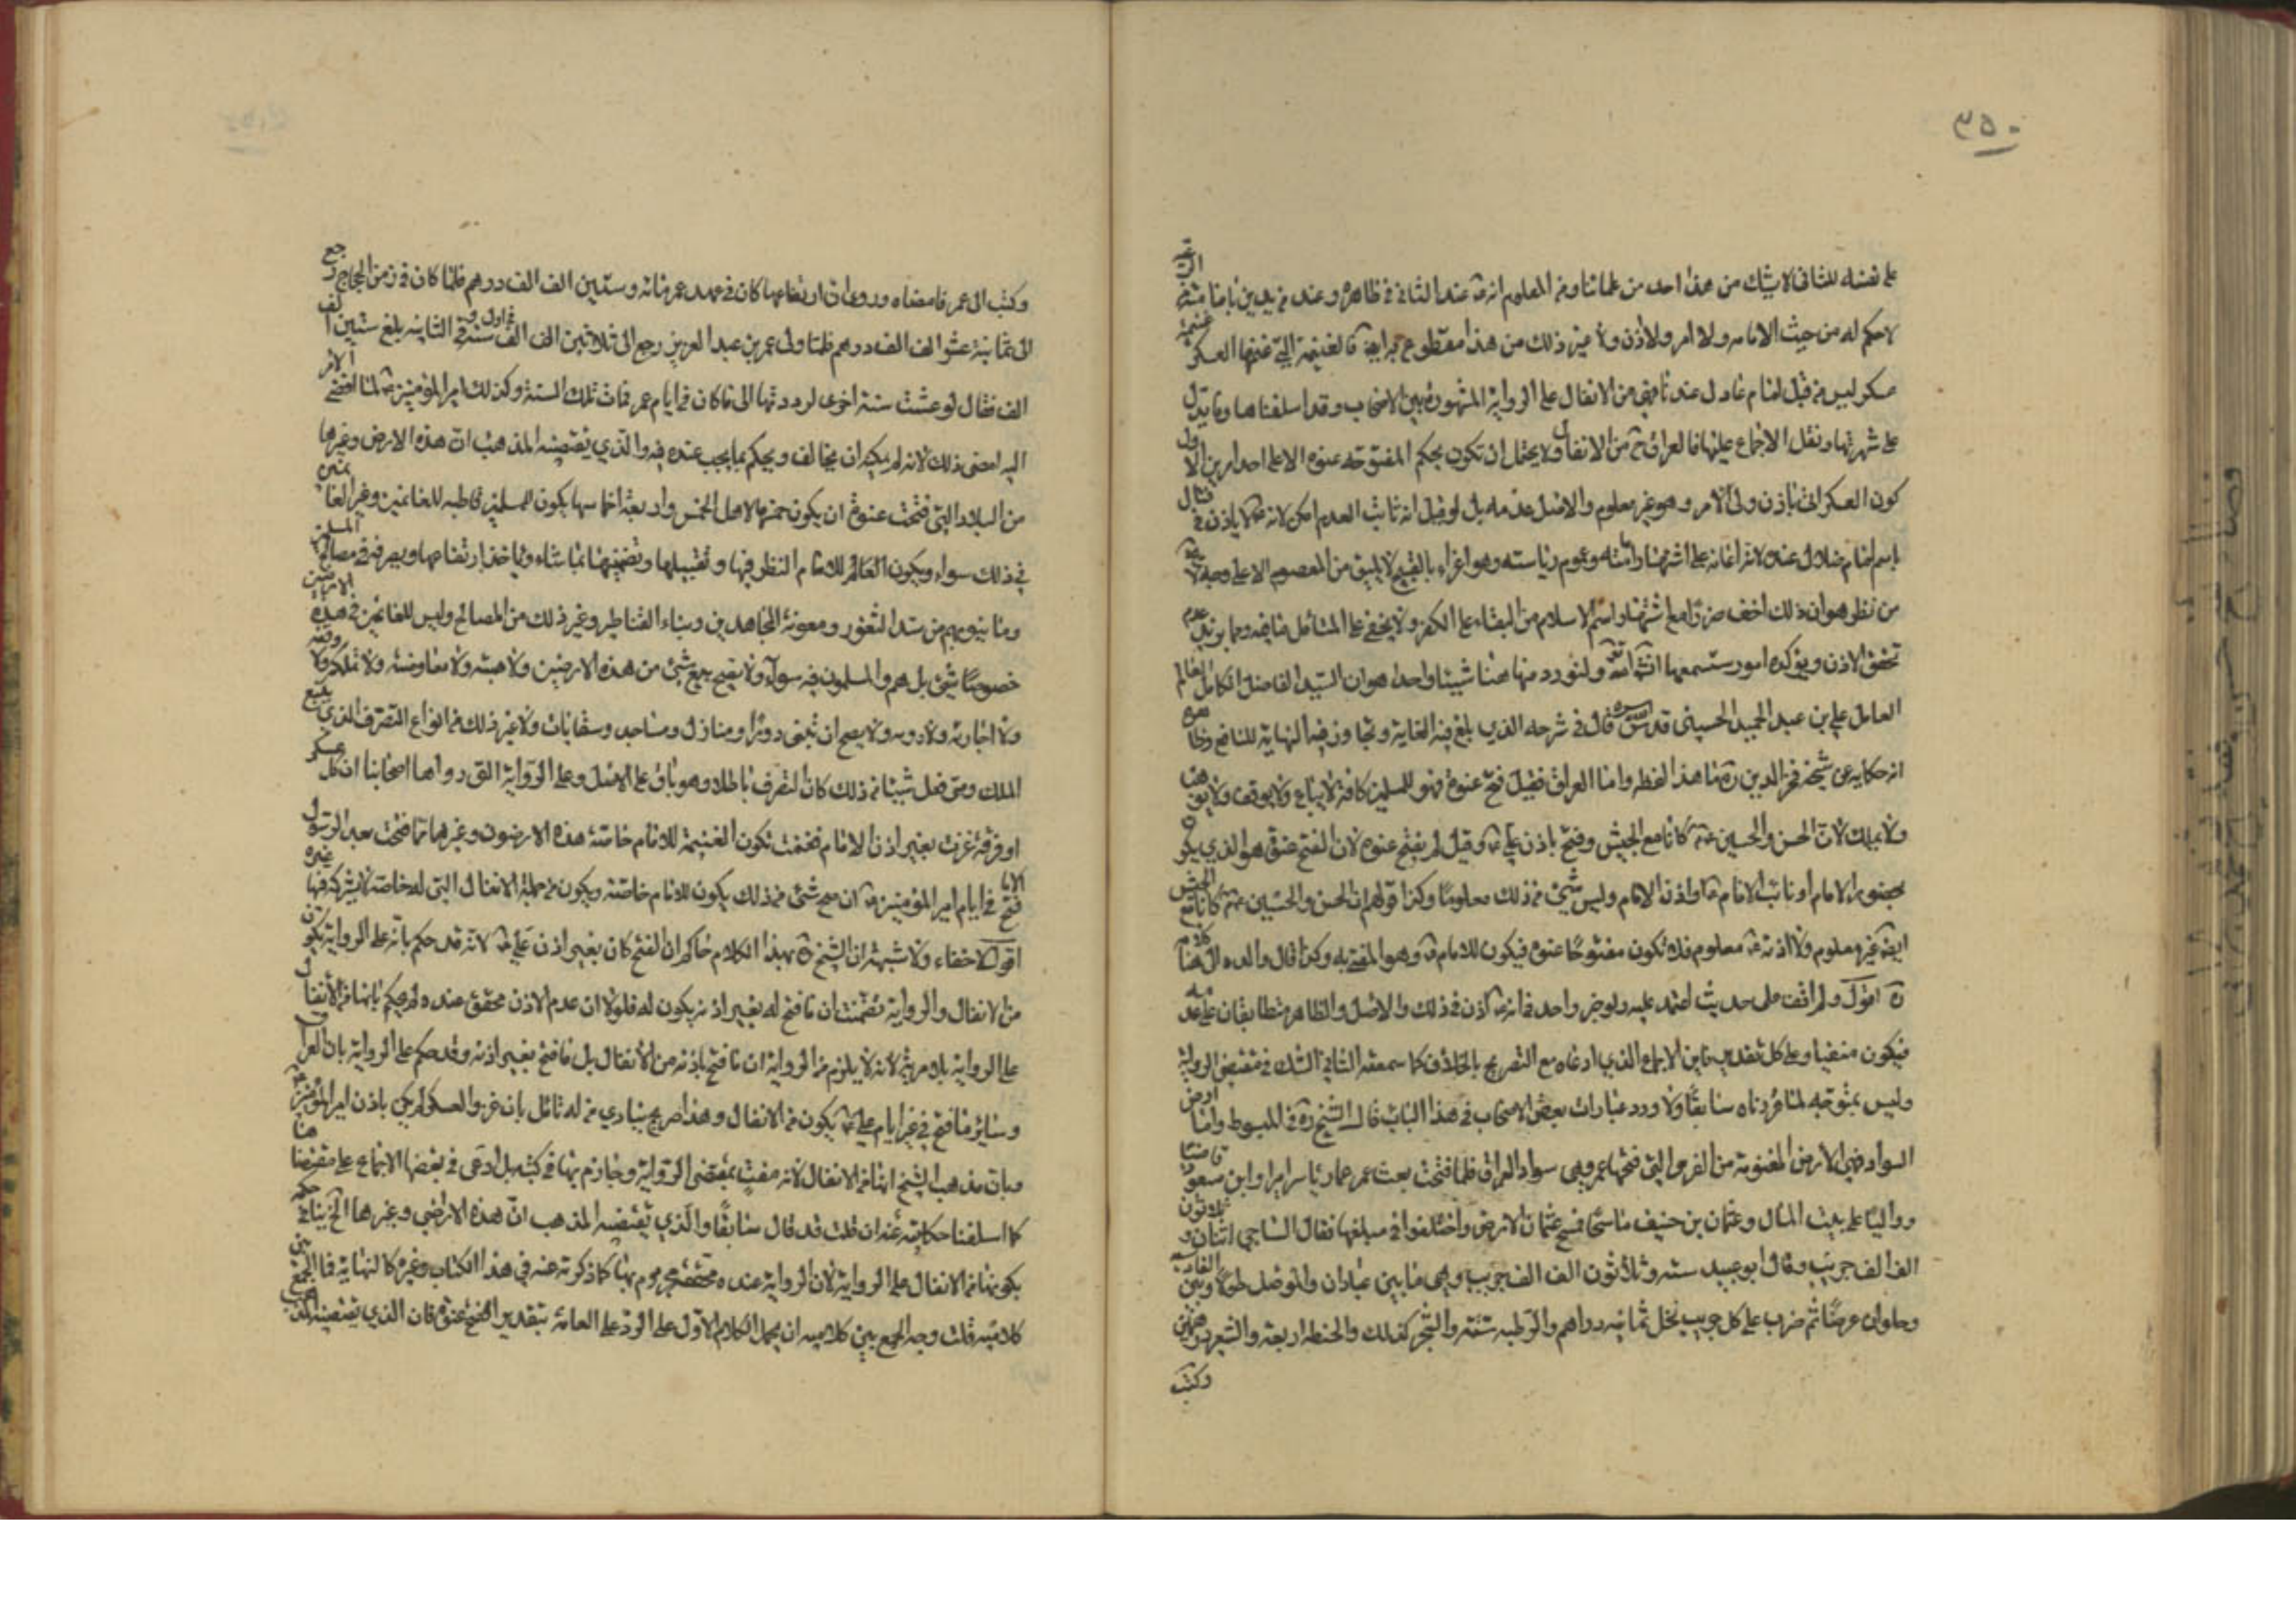 ٣٥٠
على نفسه للثاني لا يشك من هذا احد من علمائنا ومن المعلوم انه عند الثاني في ظاهره وعند من يدين بامامته
لا حكم له من حيث الامامه ولا امر ولا اذن ولا غير ذلك من هذا مقطوع به فالغنيمة التي غنمها العسكر
عسكر ليس من قبل امام عادل عندنا فهي من الانفال على الرواية المشهورة بين الاصحاب وقد اسلفناها وما يدل
على شهرتها ونقل الاجماع عليها فالعراق من الانفال ولا يحتمل ان تكون بحكم المفتوحه عنوه الا على احد امرين الاول
كون العسكر اتى باذن ولى الامر وهو غير معلوم والاصل عدمه بل لو قيل انه ثابت العدم امكن لانه لا ياذن في قتال
باسم امام ضلال عنده لانه اعانه على اشتهار امامته وعموم رياسته وهو اغراء بالقبيح لا يليق من المعصوم الا على وجه
من نظر هو ان ذلك اخف ضررا مع اشتهار اسم الاسلام من البقاء على الكفر ولا يخفى على المتامل ما فيه ومما يؤيد عدم
تحقق الاذن ويؤكده امور ستسمعها انشاء الله ولنورد منها هنا شيئا واحدا هو ان السيد الفاضل الكامل العالم
العامل علي بن عبد الحميد الحسيني قدس سره قال في شرحه الذي بلغ فيه الغاية وتجاوز فيه النهاية للنافع
انه حكايه عن شيخه فخر الدين ره ما هذا لفظه واما العراق فقيل فتح عنوة فهو للمسلمين كافة لا يباع ولا يوقف ولا يوهب
ولا يملك لان الحسن والحسين كانا مع الجيش وفتح باذن علي وقيل لم يفتح عنوه لان الفتح عنوة هو الذي يكون
بحضور الامام او نائب الامام او اذن الامام وليس شيئ من ذلك معلوما وكذا قولهم ان الحسن والحسين كانا مع الجيش
ايضا غير معلوم ولا اذنه معلوم فلا تكون مفتوحا عنوه فيكون للامام وهو المفتى به وكذا قال والده
ره اقول ولم اقف على حديث اعتمد عليه ولو خبر واحد في انه اذن في ذلك والاصل والظاهر متطابقان على عدمه
فيكون منفيا وعلى كل تقدير فاين الاجماع الذي ادعاه مع التصريح بالخلاف كما سمعته الثاني الشك في مقتضى الرواية
وليس بمتوجه لما قررناه سابقا ولا ورد عبارات بعض الاصحاب في هذا الباب قال الشيخ ره في المبسوط واما ارض
السواد فهي الارض المغنومة من الفرس التي فتحها عمر وهى سواد العراق فلما فتحت بعث عمر عمار ياسر اميرا وابن مسعود قاضيا
وواليا على بيت المال وعثمان بن حنيف ماسحا فمسح عثمان الارض واختلفوا في مبلغها فقال الساجي اثنان وثلاثون
الف الف جريب وقال ابو عبيد سته وثلاثون الف الف جريب وهى ما بين عبادان والموصل طولا وبين القادسيه
وحلوان عرضا ثم ضرب على كل جريب نخل ثمانيه دراهم والرطبه ستة والشجر كذلك والحنطه اربعة والشعير درهمين
وكتب
وكتب الى عمر فامضاه وروى ان ارتفاعها كان في عهد عمر مائه وستين الف الف درهم فلما كان في زمن الحجاج رجع
الى ثمانية عشر الف الف درهم فلما ولى عمر بن عبد العزيز رجع الى ثلاثين الف الف في اول سنة وفي الثانيه بلغ ستين الف
الف فقال لو عشت سنة اخرى لرددتها الى ما كان في ايام عمر فمات تلك السنة وكذلك امير المؤمنين لما افضى الامر
اليه امضى ذلك لانه لم يمكنه ان يخالف ويحكم بما يجب عنده فيه والذي يقتضيه المذهب ان هذه الارض وغيرها
من البلاد التى فتحت عنوة ان يكون خمسها لاهل الخمس واربعة اخماسها يكون للمسلمين قاطبه للغانمين وغير الغانمين
في ذلك سواء ويكون للامام النظر فيها وتقبيلها وتضمينها بما شاء وياخذ ارتفاعها ويصرفه في مصالح المسلمين
وما ينوبهم من سد الثغور ومعونة المجاهدين وبناء القناطر وغير ذلك من المصالح وليس للغانمين في هذه الارضين
خصوصا شيئ بل هم والمسلمون فيه سواء ولا يصح بيع شيئ من هذه الارضين ولا هبته ولا معاوضته ولا تملكه ولا وقفه
ولا اجارته ولا ارثه ولا يصح ان تبنى دورا ومنازل ومساجد وسقايات ولا غير ذلك من انواع التصرف الذي يتبع
الملك ومتى فعل شيئا من ذلك كان التصرف باطلا وهو باق على الاصل وعلى الرواية التى رواها اصحابنا ان كل عسكر
او فرقة غزت بغير اذن الامام فغنمت تكون الغنيمة للامام خاصة هذه الارضون وغيرها مما فتحت بعد الرسول
الا ما فتح في ايام امير المؤمنين ان صح شئ من ذلك يكون للامام خاصة ويكون من جملة الانفال التى له خاصة لا يشركه فيها غيره
اقول لا خفاء ولا شبهة ان الشيخ بهذا الكلام حاكم ان الفتح كان بغير اذن علي لانه قد حكم بانه على الرواية يكون
من الانفال والرواية تضمنت ان ما فتح له بغير اذنه يكون له فلولا ان عدم الاذن محقق عنده لم يحكم بانها من الانفال
على الرواية بلا مرية لانه لا يلزم من الرواية ان ما فتح باذنه من الانفال بل ما فتح بغير اذنه وقد حكم على الرواية بان العراق
وسائر ما فتح في غير ايام علي يكون من الانفال وهذا صريح ينادي من له تامل بان غزو العسكر لم يكن باذن امير المؤمنين
وبان مذهب الشيخ انها من الانفال لانه مفت بمقتضى الرواية وجازم بها في كتبه بل ادعى في بعضها الاجماع على مقتضاها
كما اسلفنا حكايته عنه ان قلت قد قال سابقا والذي يقتضيه المذهب ان هذه الاراضي وغيرها الخ ينافي حكمه
بكونها من الانفال على الرواية لان الرواية عنده محققة مجزوم بها كما ذكرته عنه في هذا الكتاب وغيره كالنهاية فما الجمع بين
كلاميه قلت وجه الجمع بين كلاميه ان يحمل الكلام الاول على الرد على العامة بتقدير الفتح عنوة فان الذي يقتضيه المذهب